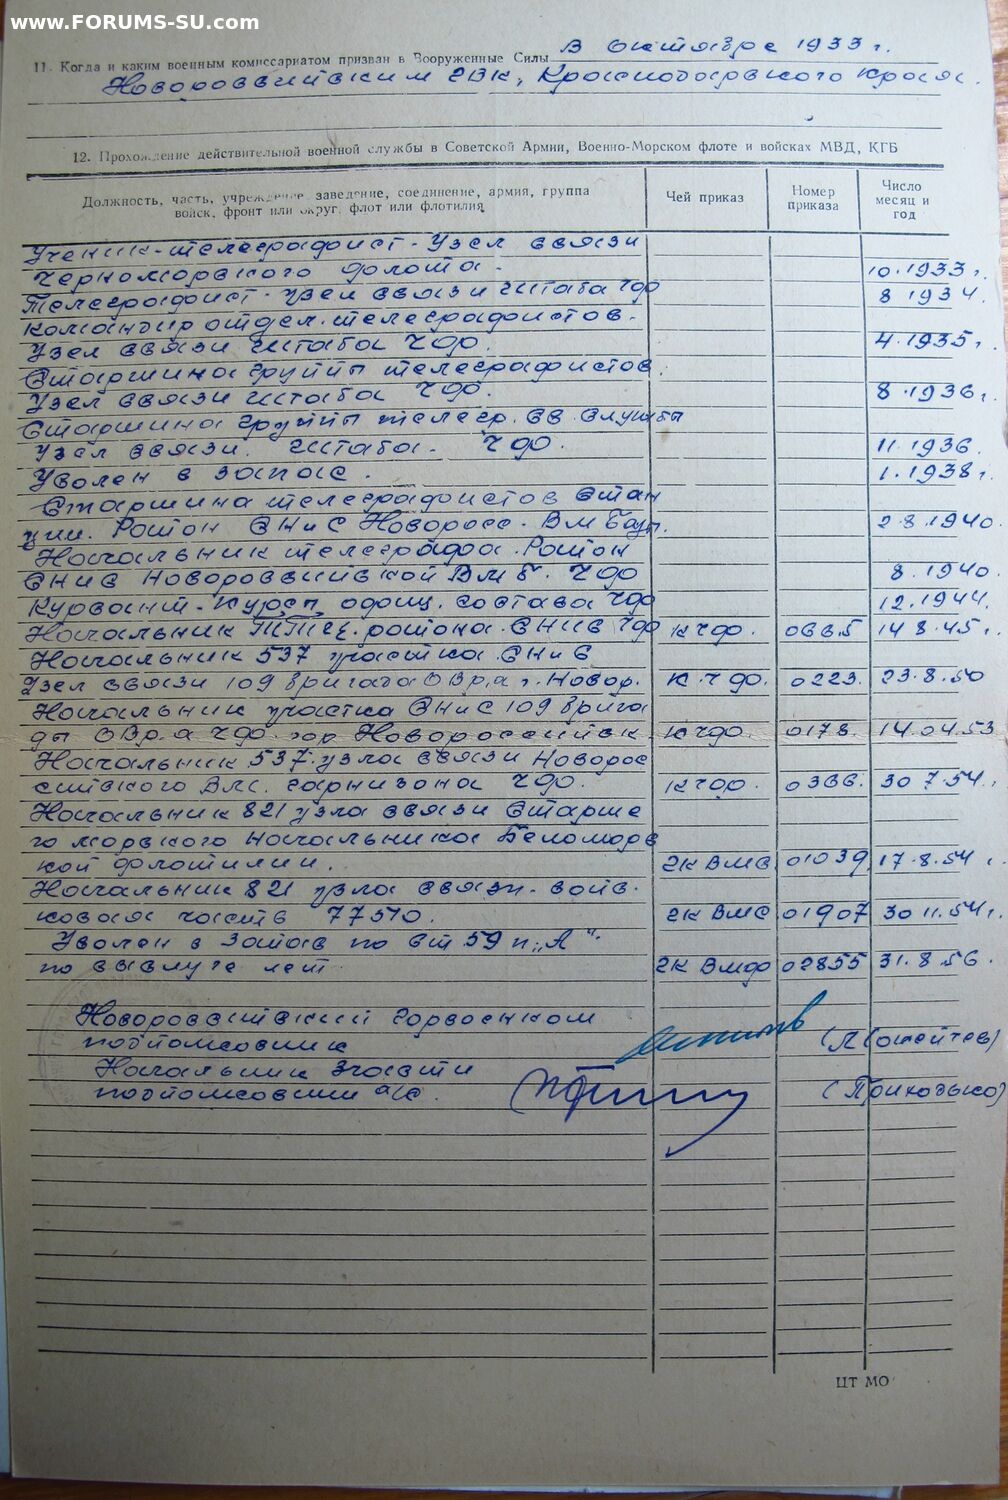 www.FORUMS-SU.com
11. Когда и каким военным комиссариатом призван в Вооруженные Силы В октябре 1933 г.
Новороссийским ГВК, Краснодарского края.
12. Прохождение действительной военной службы в Советской Армии, Военно-Морском флоте и войсках МВД, КГБ
Должность, часть, учреждение, заведение, соединение, армия, группа войск, фронт или округ, флот или флотилия
Чей приказ
Номер приказа
Число месяц и год
Ученик-телеграфист-Узел связи
Черноморского флота. 10.1933 г.
Телеграфист-узел связи штаба ЧФ 8 1934.
Командир отдел. телеграфистов.
Узел связи штаба ЧФ. 4.1935 г.
Старшина группы телеграфистов.
Узел связи штаба ЧФ. 8.1936 г.
Старшина группы телегр. св. службы
Узел связи. штаба. ЧФ. 11.1936.
Уволен в запас. 1.1938 г.
Старшина телеграфистов Стан
ции. Район СНиС Новоросс. ВМБазы. 2.8.1940.
Начальник телеграфа. Район
СНиС Новороссийской ВМБ. ЧФ 8.1940.
Курсант-Курсы офиц. состава ЧФ 12.1944.
Начальник района СНиС ЧФ КЧФ. 0665 14 8.45 г.
Начальник 537 участка СНиС
Узел связи 109 бригада ОВРа г. Новор. К.ЧФ. 0223. 23.8.50
Начальник участка СНиС 109 брига
ды ОВРа ЧФ. гор Новороссийск. КЧФ. 0178. 14.04.53
Начальник 537 узла связи Новорос
сийского гарнизона ЧФ. КЧФ. 0366. 30 7.54.
Начальник 821 узла связи Старше
го морского начальника Беломорс
кой флотилии. ГК ВМС 01039, 17.8.54 г.
Начальник 821 узла связи. войс.
ковая часть 77510. ГК ВМС 01907 30 11.54 г.
Уволен в запас по ст 59 п. „А“
по выслуге лет ГК ВМФ 02855 31.8.56.
Новороссийский горвоенком
подполковник
Начальник 3 части
подполковник а/с. (Приходько)
ЦТ МО